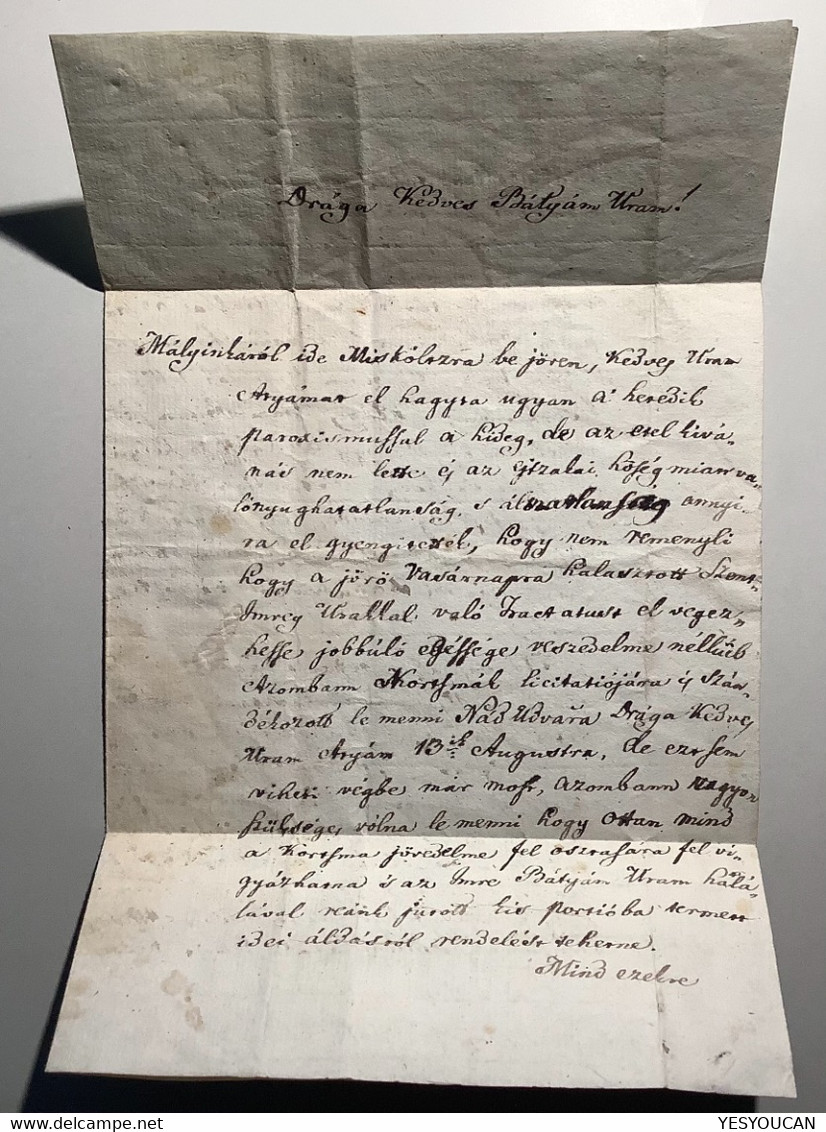 Drága Kedves Bátyám Uram!
Mályinkáról ide Miskóltzra be jöven, Kedves Uram
Atyámat el hagyta ugyan a' heredik
paroxismussal a hideg, de az etel kivá-
nás nem lette és az éjtzakai hőség miatt va-
ló nyughatatlanság, s álmatlanság annyi-
ra el gyengitették, hogy nem remenyli
hogy a jövő Vasárnapra halasztott Szent-
Imrey Urakkal való Tractatust el vegez-
hesse jobbúló egéssége veszedelme nélkűl
Azombann Kortsmák licitatiójára is szán-
dékozott le menni Nád Udvarra Drága Kedves
Uram Atyám 13ik Augustra, de ezt sem
viheti végbe már most, azombann nagyon
szükséges vólna le menni hogy ottan mind
a Kortsma jövedelme fel osztására fel vi-
gyázhatna is az Imre Bátyám Uram halá-
lával reánk jutott kis portióba termett
idei áldásról rendelést tehetne.
Mind ezekre
YESYOUCAN